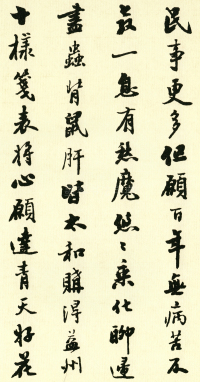 民事更多但願百年無病苦不
教一息有愁魔悠々乘化聊歸
盡蟲臂鼠肝皆太和購得益州
十樣箋表將心願達青天好花